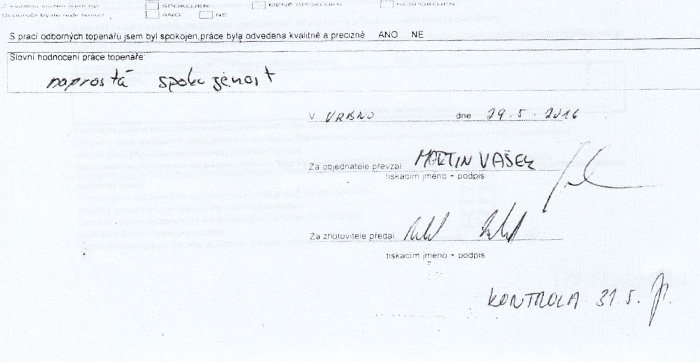 SPOKOJEN MÉNĚ SPOKOJEN NESPOKOJEN
ANO NE
S prací odborných topenářů jsem byl spokojen,práce byla odvedena kvalitně a precizně ANO NE
Slovní hodnocení práce topenáře:
naprostá spokojenost
V VRBNO dne 29.5.2016
Za objednatele převzal MARTIN VAŠEK
tiskacím jméno + podpis
Za zhotovitele předal
tiskacím jméno + podpis
KONTROLA 31.5.